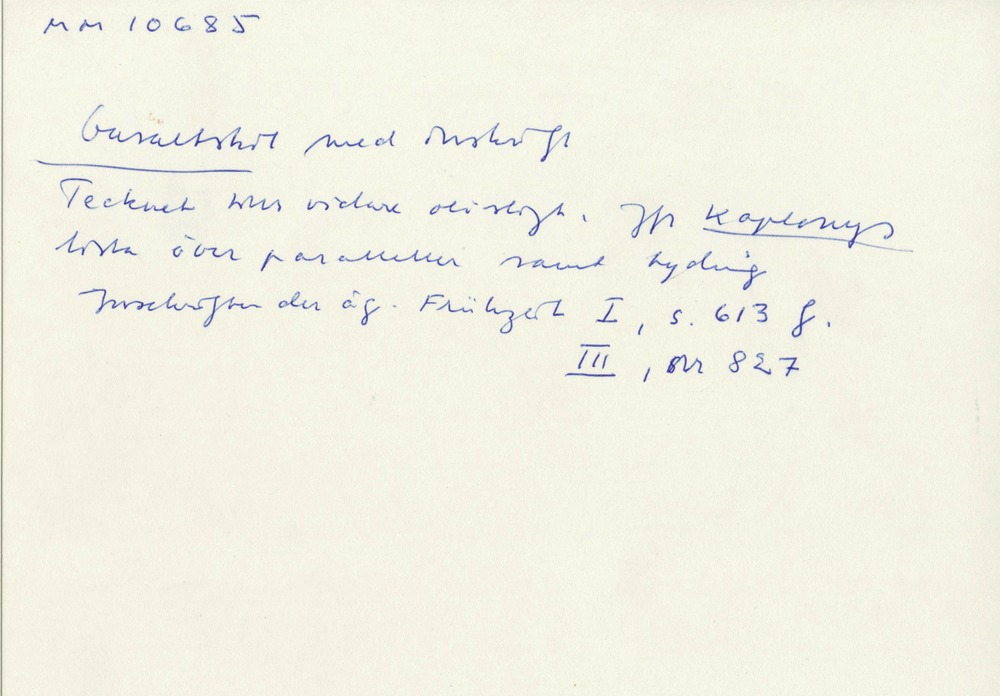 MM 10685
Basaltskål med inskrift
Tecknet tills vidare otydligt. Jfr Kaplonys
lista över paralleller samt tydning
Inschriften der äg. Frühzeit I, s. 613 f.
III, nr 827